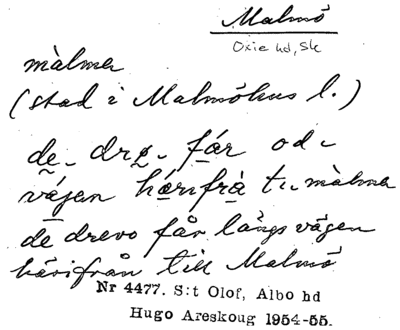 Malmö
Oxie hd, Sk
màlmə
(stad i Malmöhus l.)
de drę fár od
vágen hárifrå ti màlmə
de drevo får längs vägen
härifrån till Malmö
Nr 4477. S:t Olof, Albo hd
Hugo Areskoug 1954-55.